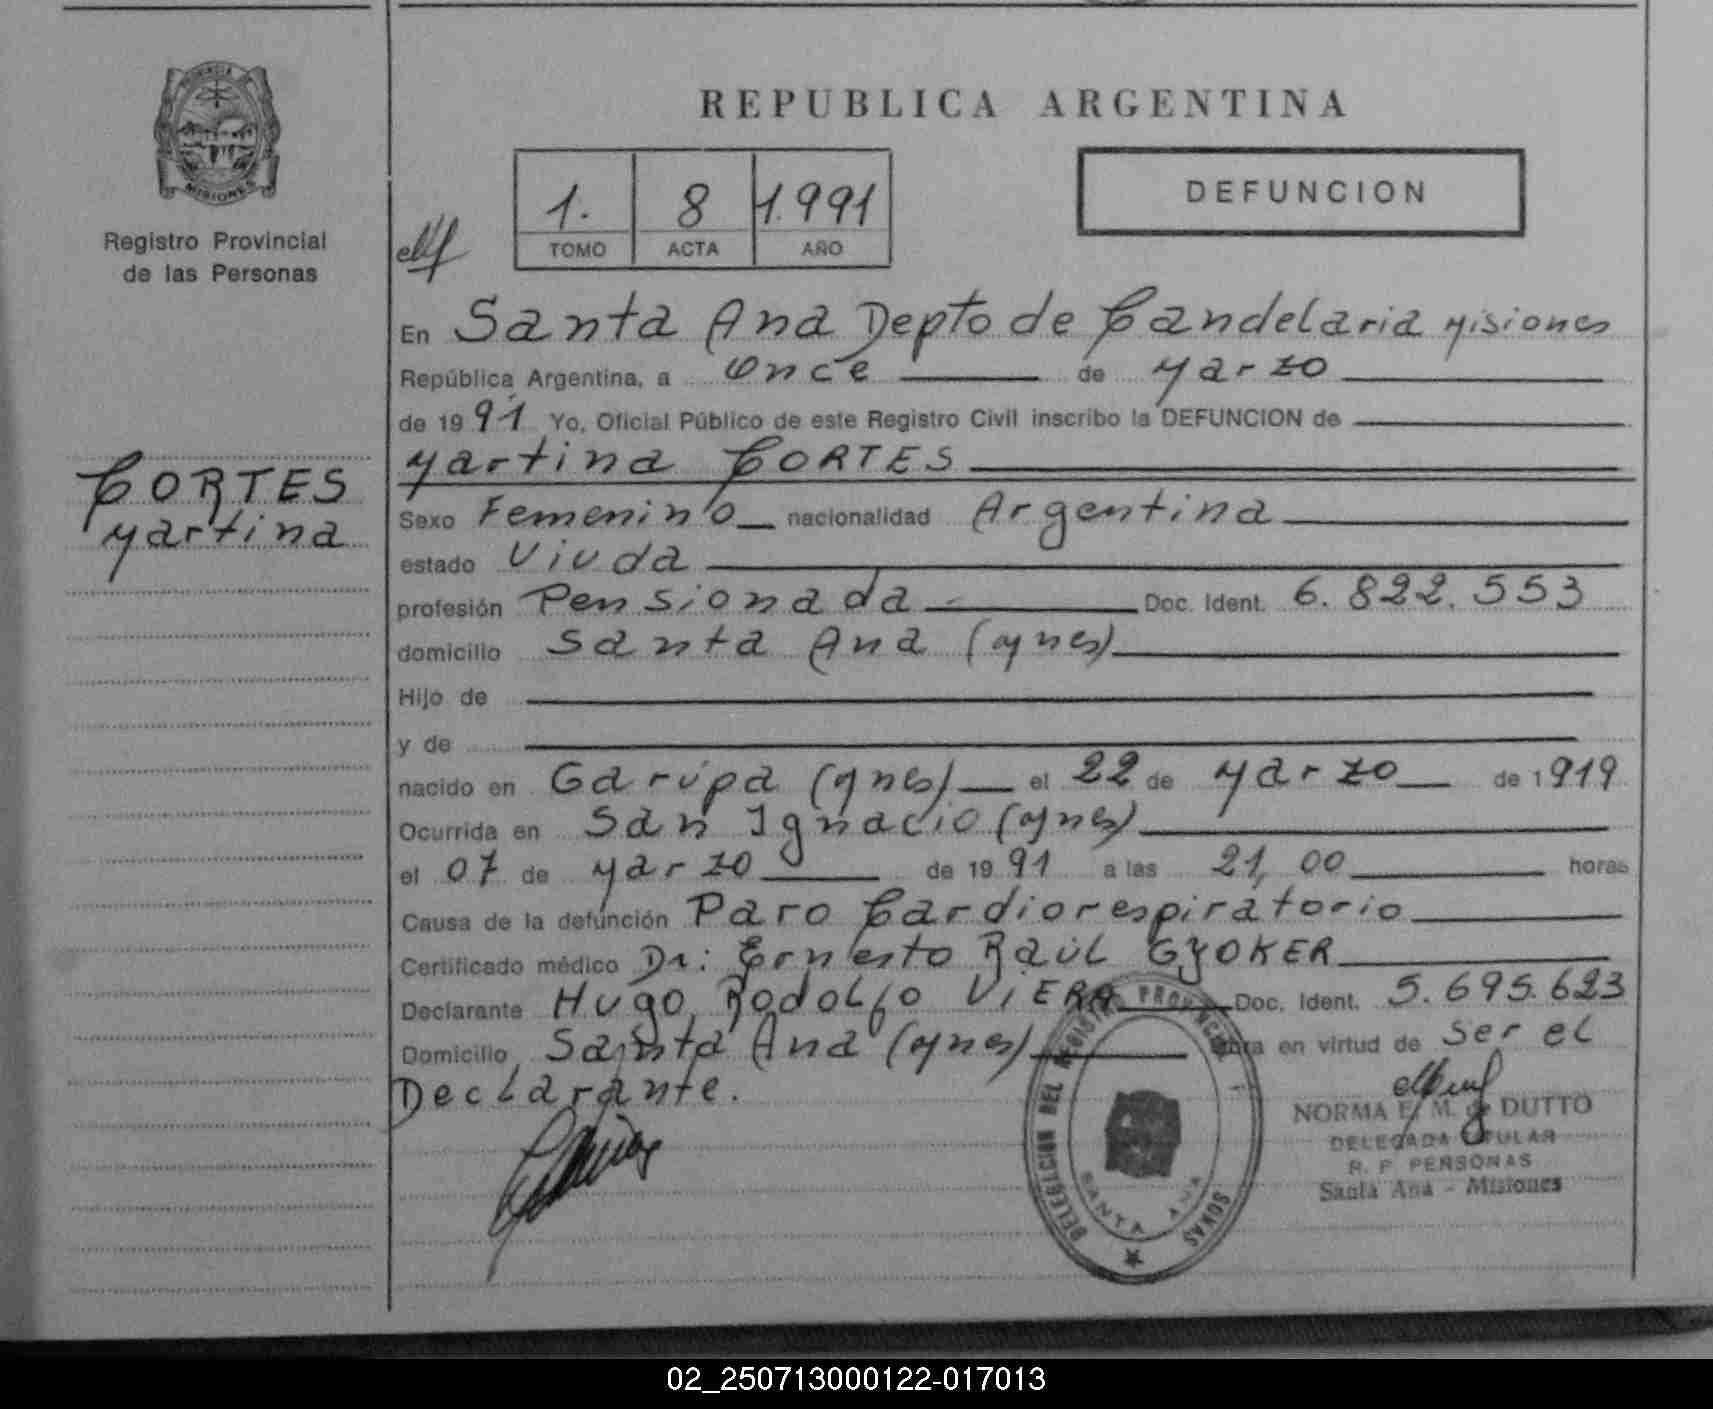 REPUBLICA ARGENTINA
PROVINCIA DE
MISIONES
Registro Provincial
de las Personas
1. 8 1.991
TOMO ACTA AÑO
DEFUNCION
En Santa Ana Depto de Candelaria Misiones
República Argentina, a Once de Marzo
de 1991 Yo, Oficial Público de este Registro Civil inscribo la DEFUNCION de
Martina CORTES
CORTES
Martina
Sexo Femenino nacionalidad Argentina
estado Viuda
profesión Pensionada Doc. Ident. 6.822.553
domicilio Santa Ana (Mnes)
Hijo de
y de
nacido en Garupa (Mnes) el 22 de Marzo de 1919
Ocurrida en San Ignacio (Mnes)
el 07 de Marzo de 1991 a las 21,00 horas
Causa de la defunción Paro Cardiorespiratorio
Certificado médico Dr: Ernesto Raúl GYOKER
Declarante Hugo Rodolfo VIERA Doc. Ident. 5.695.623
Domicilio Santa Ana (Mnes) obra en virtud de Ser el
Declarante.
DELEGACION DEL REGISTRO PROVINCIAL SONAS
SANTA ANA
NORMA E. M. de DUTTO
DELEGADA TITULAR
R. P. PERSONAS
Santa Ana - Misiones
02_250713000122-017013